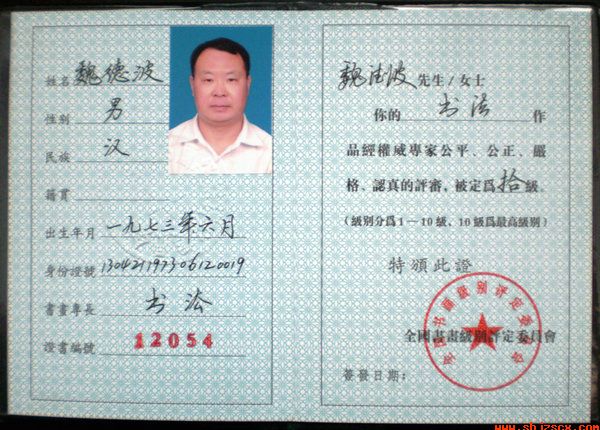 姓名 魏德波
性别 男
民族 汉
籍貫
出生年月 一九七三年六月
身份證號 130421197306120019
書畫專長 书法
證書編號 12054
魏德波 先生/女士
你的 书法 作
品經權威專家公平、公正、嚴
格、認真的評審，被定爲 拾 級。
(級别分爲1—10級、10級爲最高級别)
特頒此證
全國書畫級别評定委員會
簽發日期：
www.sbjzscx.com